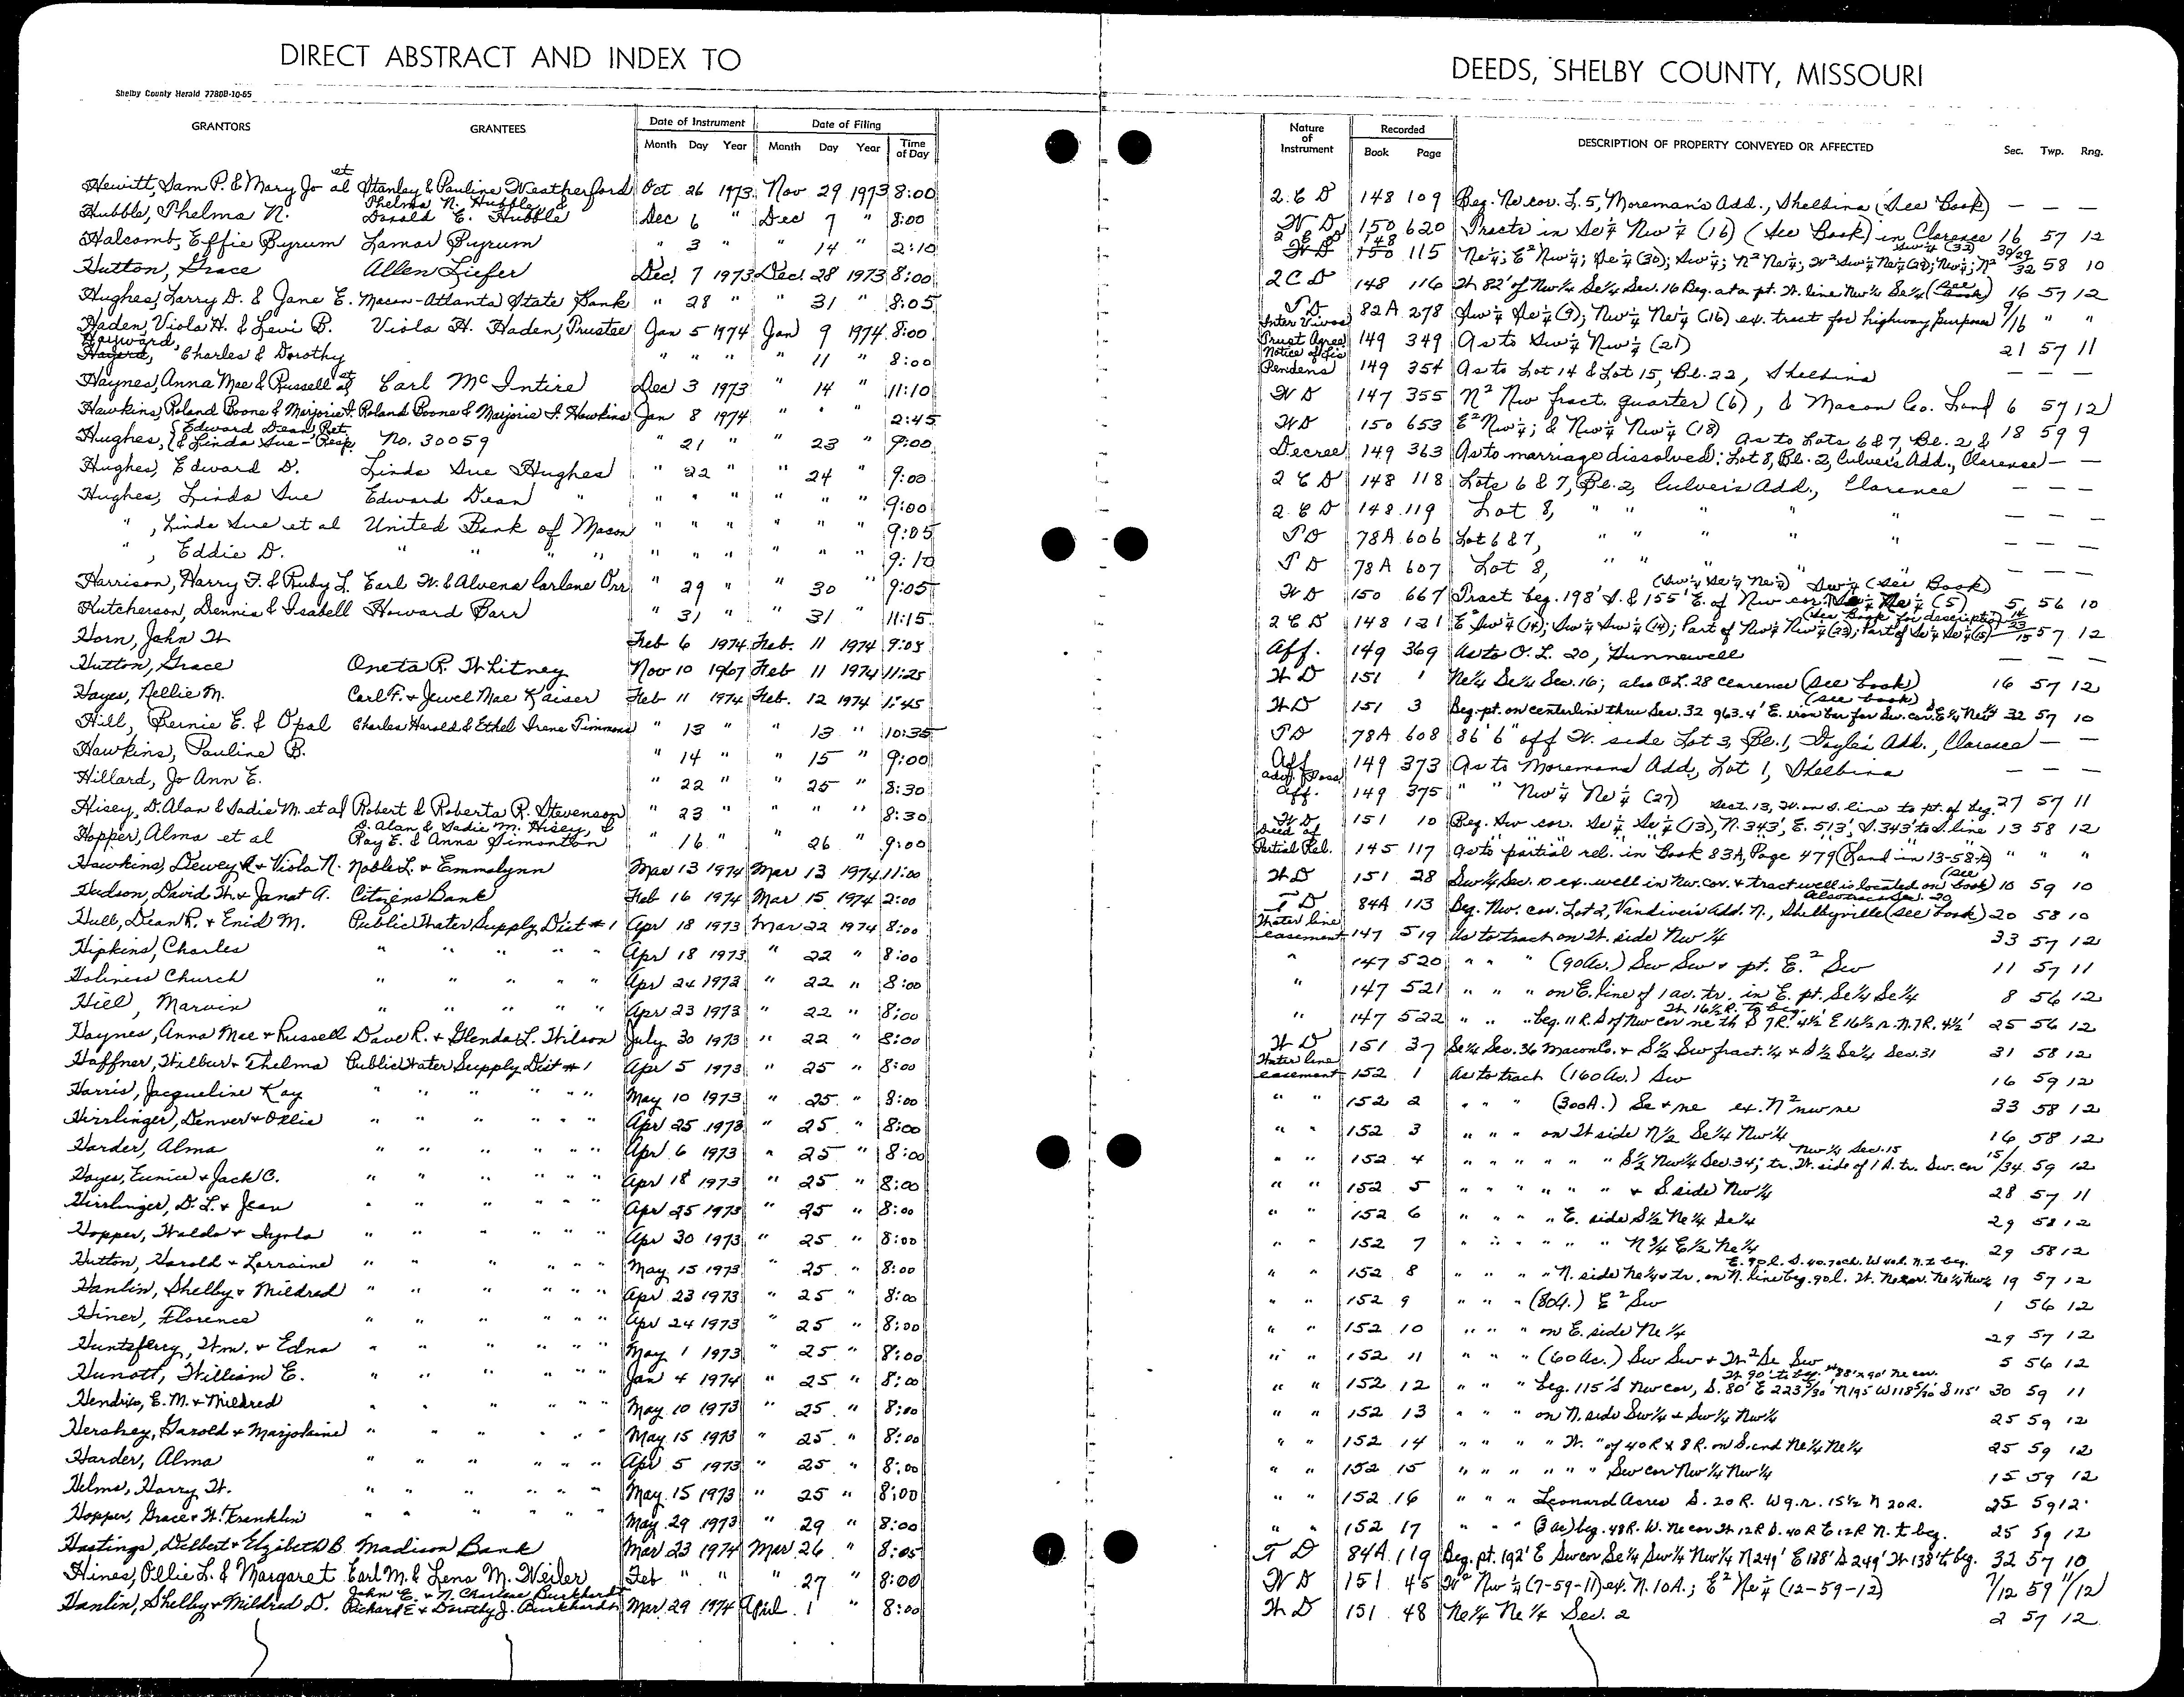 DIRECT ABSTRACT AND INDEX TO
Shelby County Herald 7780B-10-65
GRANTORS GRANTEES Date of Instrument Date of Filing
Month Day Year Month Day Year Time of Day
Hewitt, Sam P. & Mary Jo et al Stanley & Pauline Weatherford Oct 26 1973 Nov 29 1973 8:00
Hubble, Thelma N. Thelma N. Hubble, & Donald E. Hubble Dec 6 " Dec 7 " 8:00
Halcomb, Effie Byrum Lamar Byrum " 3 " " 14 " 2:10
Hutton, Grace Allen Liefer Dec. 7 1973 Dec. 28 1973 8:00
Hughes, Larry D. & Jane E. Macon-Atlanta State Bank " 28 " " 31 " 8:05
Haden, Viola H. & Levi B. Viola H. Haden, Trustee Jan 5 1974 Jan 9 1974 8:00
Hayward, Charles & Dorothy " " " " 11 " 8:00
Haynes, Anna Mae & Russell et al Carl McIntire Dec 3 1973 " 14 " 11:10
Hawkins, Roland Boone & Marjorie I. Roland Boone & Marjorie I. Hawkins Jan 8 1974 " " " 2:45
Hughes, {Edward Dean, Pet. {& Linda Sue - Resp. No. 30059 " 21 " " 23 " 9:00
Hughes, Edward D. Linda Sue Hughes " 22 " " 24 " 9:00
Hughes, Linda Sue Edward Dean " " " " " " " 9:00
" , Linda Sue et al United Bank of Macon " " " " " " 9:05
" , Eddie D. " " " " " " " " " " 9:10
Harrison, Harry F. & Ruby L. Earl W. & Alvena Carlene Orr " 29 " " 30 " 9:05
Hutcherson, Dennis & Isabell Howard Barr " 31 " " 31 " 11:15
Horn, John W Feb 6 1974 Feb. 11 1974 9:05
Hutton, Grace Oneta R. Whitney Nov 10 1967 Feb 11 1974 11:25
Hayes, Nellie M. Carl F. & Jewel Mae Kaiser Feb 11 1974 Feb. 12 1974 1:45
Hill, Bernie E. & Opal Charles Harold & Ethel Irene Timmons " 13 " " 13 " 10:35
Hawkins, Pauline B. " 14 " " 15 " 9:00
Hillard, Jo Ann E. " 22 " " 25 " 8:30
Hisey, D. Alan & Sadie M. et al Robert & Roberta R. Stevenson " 23 " " " " 8:30
Hopper, Alma et al D. Alan & Sadie M. Hisey, & Ray E. & Anna Simonton " 16 " " 26 " 9:00
Hawkins, Dewey R & Viola N. Noble L. & Emmalynn Mar 13 1974 Mar 13 1974 11:00
Hudson, David W. & Janet A. Citizens Bank Feb 16 1974 Mar 15 1974 2:00
Hull, Dean R. & Enid M. Public Water Supply Dist #1 Apr 18 1973 Mar 22 1974 8:00
Hipkins, Charles " " " " " Apr 18 1973 " 22 " 8:00
Holiness Church " " " " " Apr 24 1973 " 22 " 8:00
Hill, Marvin " " " " " Apr 23 1973 " 22 " 8:00
Haynes, Anna Mae & Russell Dave R. & Glenda L. Wilson July 30 1973 " 22 " 8:00
Haffner, Wilbur & Thelma Public Water Supply Dist #1 Apr 5 1973 " 25 " 8:00
Harris, Jacqueline Kay " " " " " May 10 1973 " 25 " 8:00
Hirrlinger, Denver & Ollie " " " " " Apr 25 1973 " 25 " 8:00
Harder, Alma " " " " " Apr 6 1973 " 25 " 8:00
Hayes, Eunice & Jack C. " " " " " Apr 18 1973 " 25 " 8:00
Hirrlinger, D. L. & Jean " " " " " Apr 25 1973 " 25 " 8:00
Hopper, Waldo & " " " " " Apr 30 1973 " 25 " 8:00
Hutton, Harold & Lorraine " " " " " May 15 1973 " 25 " 8:00
Hanlin, Shelby & Mildred " " " " " Apr 23 1973 " 25 " 8:00
Hiner, Florence " " " " " Apr 24 1973 " 25 " 8:00
Huntsberry, Wm. & Edna " " " " " May 1 1973 " 25 " 8:00
Hunott, William E. " " " " " Jan 4 1974 " 25 " 8:00
Hendrix, E. M. & Mildred " " " " " May 10 1973 " 25 " 8:00
Hershey, Harold & Marjolaine " " " " " May 15 1973 " 25 " 8:00
Harder, Alma " " " " " Apr 5 1973 " 25 " 8:00
Helms, Harry W. " " " " " May 15 1973 " 25 " 8:00
Hopper, Grace & W. Franklin " " " " " May 29 1973 " 29 " 8:00
Hastings, Delbert & Elizabeth B. Madison Bank Mar 23 1974 Mar. 26 " 8:05
Hines, Ollie L. & Margaret Earl M. & Lena M. Weiler Feb " " " 27 " 8:00
Hanlin, Shelby & Mildred D. John E. & N. Charlene Burkhardt Richard E & Dorothy J. Burkhardt Mar 29 1974 April 1 " 8:00
DEEDS, SHELBY COUNTY, MISSOURI
Nature of Instrument Recorded DESCRIPTION OF PROPERTY CONVEYED OR AFFECTED Sec. Twp. Rng.
Book Page
2 C D 148 109 Beg. Ne cor. L. 5, Moreman's Add., Shelbina (See Book) — — —
W D 150 620 Tracts in Se¼ Nw¼ (16) (See Book) in Clarence 16 57 12
2 C D 148 115 Ne¼; E² Nw¼; Se¼ (30); Sw¼; N² Ne¼; W² Sw¼ Ne¼ (29); Nw¼; N² Sw¼ (32) 30/29 32 58 10
2 C D 148 116 W 82' of Nw¼ Se¼ Sec. 16 Beg. at a pt. W. line Nw¼ Se¼ (See Book) 16 57 12
T D 82A 278 Sw¼ Se¼ (9); Nw¼ Ne¼ (16) ex. tract for highway purposes 9/16 " "
Inter Vivos Trust Agree 149 349 As to Sw¼ Nw¼ (21) 21 57 11
Notice of Lis Pendens 149 354 As to Lot 14 & Lot 15, Bl. 22, Shelbina — — —
W D 147 355 N² Nw fract. quarter (6), & Macon Co. Land 6 57 12
WD 150 653 E² Nw¼; & Nw¼ Nw¼ (18) 18 59 9
Decree 149 363 As to marriage dissolved: As to Lots 6 & 7, Bl. 2 & Lot 8, Bl. 2, Culver's Add., Clarence — —
2 C D 148 118 Lots 6 & 7, Bl. 2, Culver's Add., Clarence — — —
2 C D 148 119 Lot 8, " " " " — — —
T D 78A 606 Lot 6 & 7, " " " " — — —
T D 78A 607 Lot 8, " " " " — — —
W D 150 667 Tract beg. 198' S. & 155' E. of Nw cor. (Sw¼ Se¼ Ne¼) Sw¼ Ne¼ (5) (See Book) 5 56 10
2 C D 148 121 E² Sw¼ (14); Sw¼ Sw¼ (14); Part of Nw¼ Nw¼ (23); Part of Se¼ Se¼ (15) (See Book for description) 14 23 15 57 12
Aff. 149 369 As to O. L. 20, Hunnewell — — —
W D 151 1 Ne¼ Se¼ Sec. 16; also OL. 28 Clarence (see book) 16 57 12
W D 151 3 Beg. pt. on centerline thru Sec. 32 963.4' E. iron bar for Sw. cor. E½ Ne¼ (see book) 32 57 10
T D 78A 608 86' 6" off W. side Lot 3, Bl. 1, Doyle's Add., Clarence — —
Aff. 149 373 As to Moremans Add., Lot 1, Shelbina — — —
Adv. Poss. Aff. 149 375 " " Nw¼ Ne¼ (27) 27 57 11
W D 151 10 Beg. Sw cor. Se¼ Se¼ (13), N. 343', E. 513', S. 343' to S. line Sect. 13, W. on S. line to pt. of beg. 13 58 12
Deed of Partial Rel. 145 117 As to partial rel. in Book 83A, Page 479 (Land in 13-58-12) " " "
W D 151 28 Sw¼ Sec. 10 ex. well in Nw. cor. & tract well is located on (see book) 10 59 10
T D 84A 113 Beg. Nw. cor. Lot 2, Vandiver's Add. N., Shelbyville (see book) Also tract Sec. 20 20 58 10
Water line easement 147 519 As to tract on W. side Nw¼ 33 57 12
" 147 520 " " " (90 Ac.) Sw Sw & pt. E.² Sw 11 57 11
" 147 521 " " " on E. line of 1 ac. tr. in E. pt. Se¼ Se¼ 8 56 12
" 147 522 " " " beg. 11 R. S of Nw cor ne th S 7 R. 4½' E 16½ r. N. 7 R. 4½' W 16½ R. to beg. 25 56 12
W D 151 37 Se¼ Sec. 36 Macon Co. & S½ Sw fract. ¼ & S½ Se¼ Sec. 31 31 58 12
Water line easement 152 1 As to tract (160 Ac.) Sw 16 59 12
" " 152 2 " " " (300 A.) Se & ne ex. N² nw ne 33 58 12
" " 152 3 " " " on W side N/2 Se¼ Nw¼ 16 58 12
" " 152 4 " " " " " " S½ Nw¼ Sec. 34; tr. W. side of 1 A. tr. Sw. cor Nw¼ Sec. 15 15/34 59 12
" " 152 5 " " " " " " & S. side Nw¼ 28 57 11
" " 152 6 " " " " E. side S½ Ne¼ Se¼ 29 58 12
" " 152 7 " " " " " " N¾ E½ Ne¼ 29 58 12
" " 152 8 " " " " N. side Ne¼ & tr. on N. line beg. 90 l. W. Ne cor. Ne¼ Nw¼ E. 90 l. S. 40.70 ch. W 40 l. N. to beg. 19 57 12
" " 152 9 " " " (80 A.) E² Sw 1 56 12
" " 152 10 " " " on E. side Ne¼ 29 57 12
" " 152 11 " " " (60 Ac.) Sw Sw & W² Se Sw 5 56 12
" " 152 12 " " " beg. 115' S Nw cor, S. 80' E 223 N 195 W 118 S 115' W 90' to beg. 30 59 11
" " 152 13 " " " on N. side Sw¼ & Sw¼ Nw¼ 25 59 12
" " 152 14 " " " " W. " of 40 R x 8 R. on S. end Ne¼ Ne¼ 25 59 12
" " 152 15 " " " " " " Sw cor Nw¼ Nw¼ 15 59 12
" " 152 16 " " " Leonard Acres S. 20 R. W 9. r. 15½ N 20 R. 25 59 12
" " 152 17 " " " (3 ac) beg. 48 R. W. Ne cor W 12 R S. 40 R E 12 R N. to beg. 25 59 12
T D 84A 119 Beg. pt. 192' E Sw cor Se¼ Sw¼ Nw¼ N 249' E 138' S 249' W 138' to beg. 32 57 10
W D 151 45 W² Nw¼ (7-59-11) ex. N. 10 A.; E² Ne¼ (12-59-12) 7/12 59 11/12
W D 151 48 Ne¼ Ne¼ Sec. 2 2 57 12